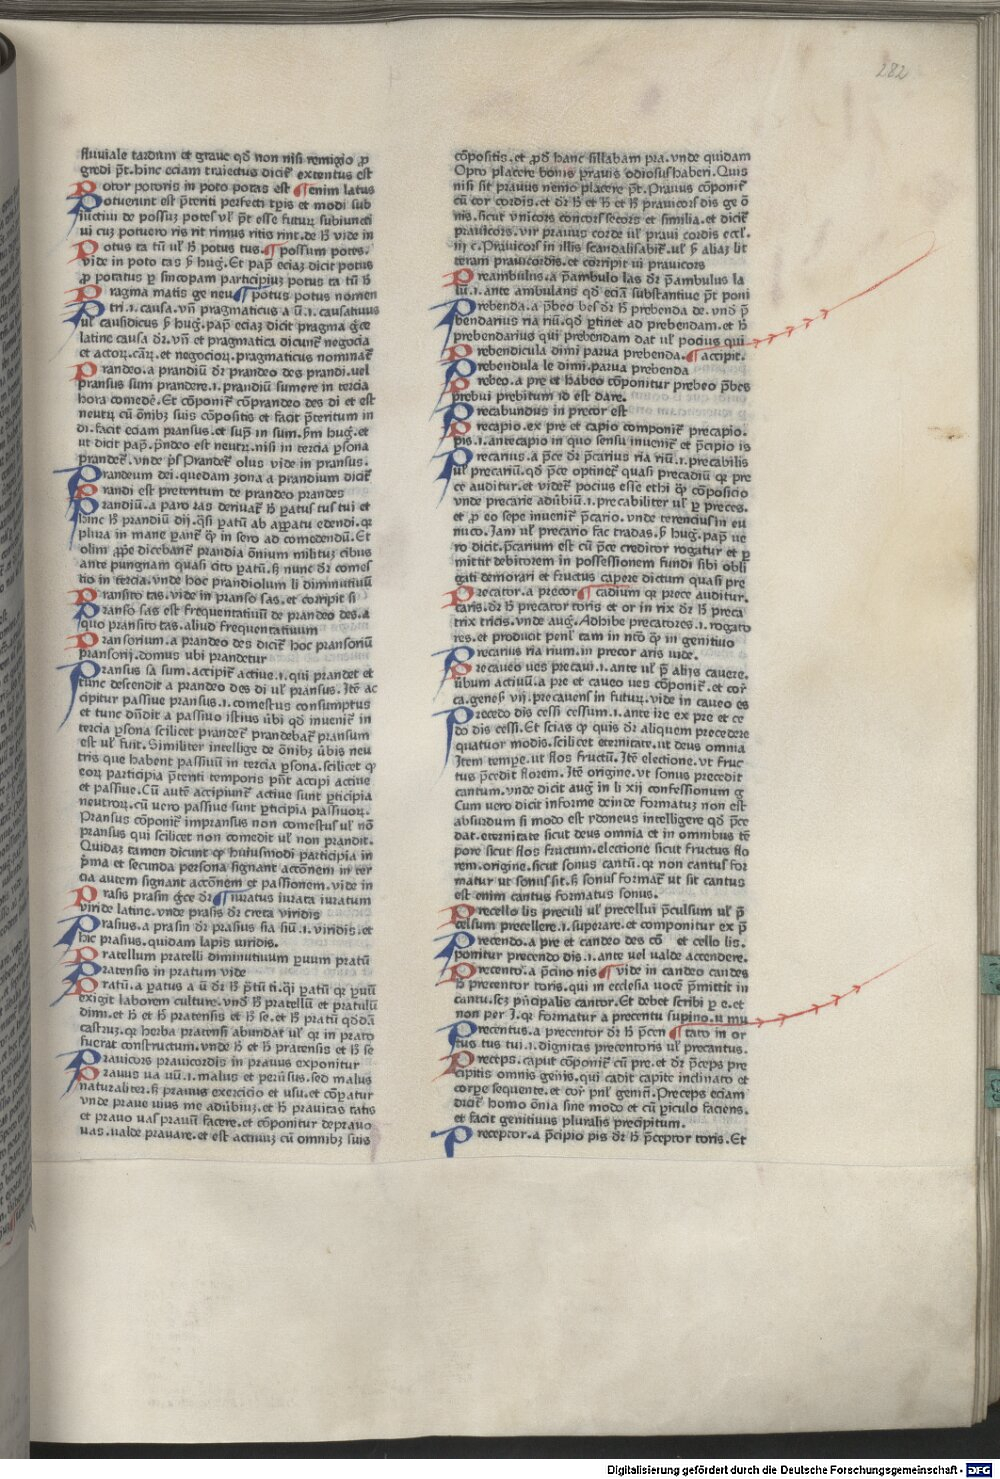 282
fluuiale tardum et graue qd̄ non nisi remigio ꝓ
gredi pt̄. hinc eciam traiectus dicit̄ extentus est
Potor potoris in poto potas est ¶ enim latus
Potuerunt est p̄teriti perfecti tp̄is et modi sub
iuctiui de possuꝫ potes ul' pt̄ esse futuꝝ subiuncti
ui cuꝫ potuero ris rit rimus ritis rint. de hͦ vide in
Potus ta tū ul' hͦ potus tus. ¶ possum potes.
vide in poto tas ẜm hug. Et pap̄ eciaꝫ dicit potus
ꝓ potatus ꝑ sincopam participiuꝫ potus ta tū hͦ
Pragma matis ge neu ¶ potus potus nomen
tri .i. causa. vn̄ pragmaticus a ū .i. causatiuus
ul' causidicus ẜm hug. pap̄ eciaꝫ dicit pragma g̅ce
latine causa dr̄. vn̄ et pragmatica dicunt̄ negocia
et actoꝝ. cāꝝ. et negocioꝝ. pragmaticus nominat̄
Prandeo. a prandiū dr̄ prandeo des prandi. uel
pransus sum prandere .i. prandiū sumere in tercia
hora comedē. Et cōponit̄ cōprandeo des di et est
neutꝝ cū ōnibꝫ suis cōpositis et facit p̄teritum in
di. facit eciam pransus. et sup̄ in sum. ẜm hug. et
ut dicit pap̄. p̄ndeo est neutꝝ. nisi in tercia ꝑsona
prandet̄. vnde ꝑs̄ Prandet̄ olus vide in pransus.
Prandeum dei. quedam zona a prandium dicit̄
Prandi est preteritum de prandeo prandes
Prandiū. a paro ras deriuat̄ hͦ ꝑatus tus tui et
hinc hͦ prandiū dij. q̄si ꝑatū ab apꝑatu edendi. qꝛ
plura in mane ꝑant̄ qͣ in sero ad comedendū. Et
olim ꝓpe dicebant̄ prandia ōnium milituꝫ cibus
ante pungnam quasi cito ꝑatū. ẜ nunc dr̄ comes
tio in tercia. vnde hoc prandiolum li diminutiuū
Pransito tas. vide in pranso sas. et corripit si
Pranso sas est frequentatiuū de prandeo des. a
quo pransito tas. aliud frequentatiuum
Pransorium. a prandeo des dicit̄ hoc pransoriū
pransorij. domus ubi prandetur
Pransus sa sum. accipit̄ actiue .i. qui prandet et
tunc descendit a prandeo des di ul' pransus. Itē ac
cipitur passiue pransus .i. comestus consumptus
et tunc dn̄dit a passiuo istius ūbi qd̄ inuenit̄ in
tercia ꝑsona scilicet prandet̄ prandebat̄ pransum
est ul' fuit. Similiter intellige de ōnibꝫ ūbis neu
tris que habent passiuū in tercia ꝑsona. scilicet qͣ
eoꝝ participia p̄teriti temporis pn̄t accipi actiue
et passiue. Cū autē accipiunt̄ actiue sunt ꝑticipia
neutroꝝ. cū uero passiue sunt ꝑticipia passiuoꝝ.
Pransus cōponit̄ impransus non comestus ul' nō
pransus qui scilicet non comedit ul' non prandit.
Quidaꝫ tamen dicunt qͣ huiusmodi participia in
p̄ma et secunda persona signant accōnem in ter
cia autem signant accōnem et passionem. vide in
Prasis prasin g̅ce dr̄ ¶ iuratus iurata iuratum
viride latine. vnde prasis dr̄ creta viridis
Prasius. a prasin dr̄ prasius sia siū .i. viridis. et
hic prasius. quidam lapis uiridis.
Pratellum pratelli diminutiuum ꝑuum pratū
Pratensis in pratum vide
Pratū. a ꝑatus a ū dr̄ hͦ p̄tū ti. q̄i ꝑatū qꝛ ꝑuū
exigit laborem culture. vnd̄ hͦ pratellū et pratulū
dimi. et hͦ et hͦ pratensis et hͦ se. et hͦ pratū qd̄dā
castruꝫ. qꝛ herba pratensi abundat ul' qꝛ in prato
fuerat constructum. vnde hͦ et hͦ pratensis et hͦ se
Prauicors prauicordis in prauus exponitur
Prauus ua uū .i. malus et peruīsus. sed malus
naturaliter. ẜ prauus exercicio et usu. et cōꝑatur
vnde praue uius me adūbiuꝫ. et hͦ prauitas tatis
et prauo uas prauū facere. et cōponitur deprauo
uas. ualde prauare. et est actiuuꝫ cū omnibꝫ suis
cōpositis. et ꝓd̄ hanc sillabam pra. vnde quidam
Opto placere bonis prauis odiosus haberi. Quis
nisi sit prauus nemo placere pt̄. Prauus cōponit̄
cū cor cordis. et dr̄ hͦ et hͦ et hͦ prauicors dis ge ō
nis. sicut vnicors concors secors et similia. et dicit̄
prauicors. vir prauus corde ul' praui cordis eccl.
iij c. Prauicors in illis scandalisabit̄. ul' ẜm aliaꝫ lit
teram prauicordis. et corripit ui prauicors
Preambulus. a p̄ambulo las dr̄ p̄ambulus la
lū .i. ante ambulans qd̄ eciā substantiue pt̄ poni
Prebenda. a p̄beo bes dr̄ hͦ prebenda de. vnd̄ p̄
bendarius ria riū. qd̄ ꝑtinet ad prebendam. et hͦ
prebendarius qui prebendam dat ul' pocius qui
Prebendicula dimi parua prebenda. ¶ accipit.
Prebendula le dimi. parua prebenda
Prebeo. a pre et habeo cōponitur prebeo p̄bes
prebui prebitum id est dare.
Precabundus in precor est
Precapio. ex pre et capio componit̄ precapio.
pis .i. antecapio in quo sensu inuenit̄ et p̄cipio is
Precarius. a p̄ce dr̄ p̄carius ria riū .i. precabilis
ul' precariū. qd̄ p̄ce optinet̄ quasi precadiū qꝛ pre
ce auditur. et videt̄ pocius esse ethi qͣ cōposicio
vnde precarie adūbiū .i. precabiliter ul' ꝑ preces.
et ꝓ eo sepe inuenit̄ p̄cario. vnde terencius in eu
nuco. Jam ul' precario fac tradas. ẜm hug. pap̄ ue
ro dicit. p̄carium est cū p̄ce creditor rogatur et ꝑ
mittit debitorem in possessionem fundi sibi obli
gati demorari et fructus capere dictum quasi pre
Precator. a precor ¶ cadium qꝛ prece auditur.
caris. dr̄ hͦ precator toris et or in rix dr̄ hͦ preca
trix tricis. vnde aug. Adhibe precatores .i. rogato
res. et producit penl' tam in ntō qͣ in genitiuo
Precarius ria rium. in precor aris uide.
Precaueo ues precaui .i. ante ul' p̄ alijs cauere.
ūbum actiuū. a pre et caueo ues cōponit̄. et cor̄
ca. genes̄ vij. precauens in futuꝝ. vide in caueo es
Precedo dis cessi cessum .i. ante ire ex pre et ce
do dis cessi. Et scias qͣ quis dr̄ aliquem precedere
quatuor modis. scilicet eternitate. ut deus omnia
Item tempe. ut flos fructū. Itē electione. vt fruc
tus p̄cedit florem. Itē origine. vt sonus precedit
cantum. vnde dicit aug̅ in li xij confessionum g
Cum uero dicit informe deinde formatuꝫ non est
absurdum si modo est ydoneus intelligere qd̄ p̄ce
dat. eternitate sicut deus omnia et in omnibus tē
pore sicut flos fructum. electione sicut fructus flo
rem. origine. sicut sonus cantū. qꝛ non cantus for
matur ut sonus sit. ẜ sonus format̄ ut sit cantus
est enim cantus formatus sonus.
Precello lis preculi ul' precellui p̄culsum ul' p̄
celsum precellere .i. superare. et componitur ex p̄
Precendo. a pre et candeo des cō et cello lis.
ponitur precendo dis .i. ante uel ualde accendere.
Precento. a p̄cino nis ¶ vide in candeo candes
hͦ precentor toris. qui in ecclesia uocē p̄mittit in
cantu. scꝫ pn̄cipalis cantor. Et debet scribi ꝑ e. et
non per I. qꝛ formatur a precentu supino. u mu
Precentus. a precentor dr̄ hͦ p̄cen ¶ tato in or
tus tus tui .i. dignitas precentoris ul' precantus.
Preceps. caput cōponit̄ cū pre. et dr̄ p̄ceps pre
cipitis omnis gen̄is. qui cadit capite inclinato et
corpe sequente. et cor̄ pnl' gemīti. Preceps eciam
dicit̄ homo ōnia sine modo et cū ꝑiculo faciens.
et facit genitiuus pluralis precipitum.
Preceptor. a p̄cipio pis dr̄ hͦ p̄ceptor toris. Et
Digitalisierung gefördert durch die Deutsche Forschungsgemeinschaft - DFG